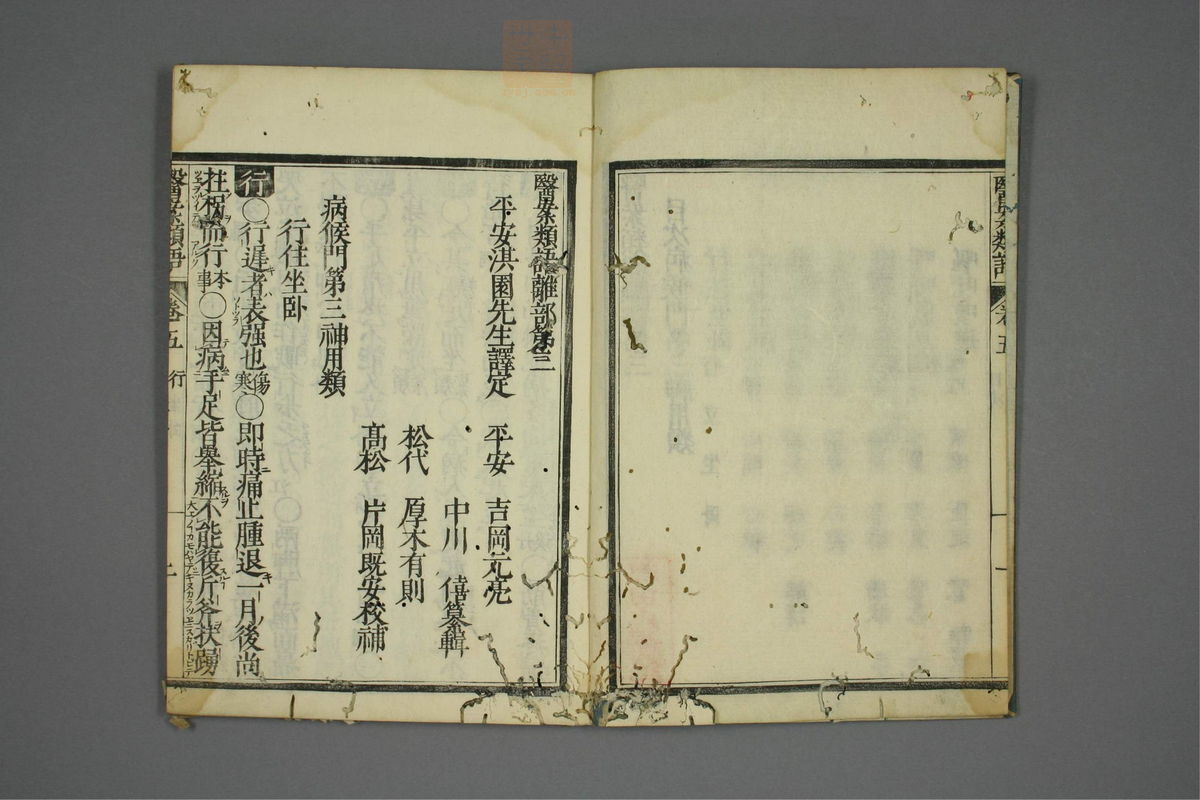 醫案類語 卷五
醫案類語離部第三
平安淇園先生譯定 平安 吉岡元亮
中川 僖纂輯
松代 厚木有則
高松 片岡既安校補
病候門第三神用類
行住坐卧
行 ○行遲者表强也傷寒○即時痛止腫退一月後尚
拄柺而行本事○因病手足皆拳縮不能復斤斧扶踴
醫案類語 卷五 行 一